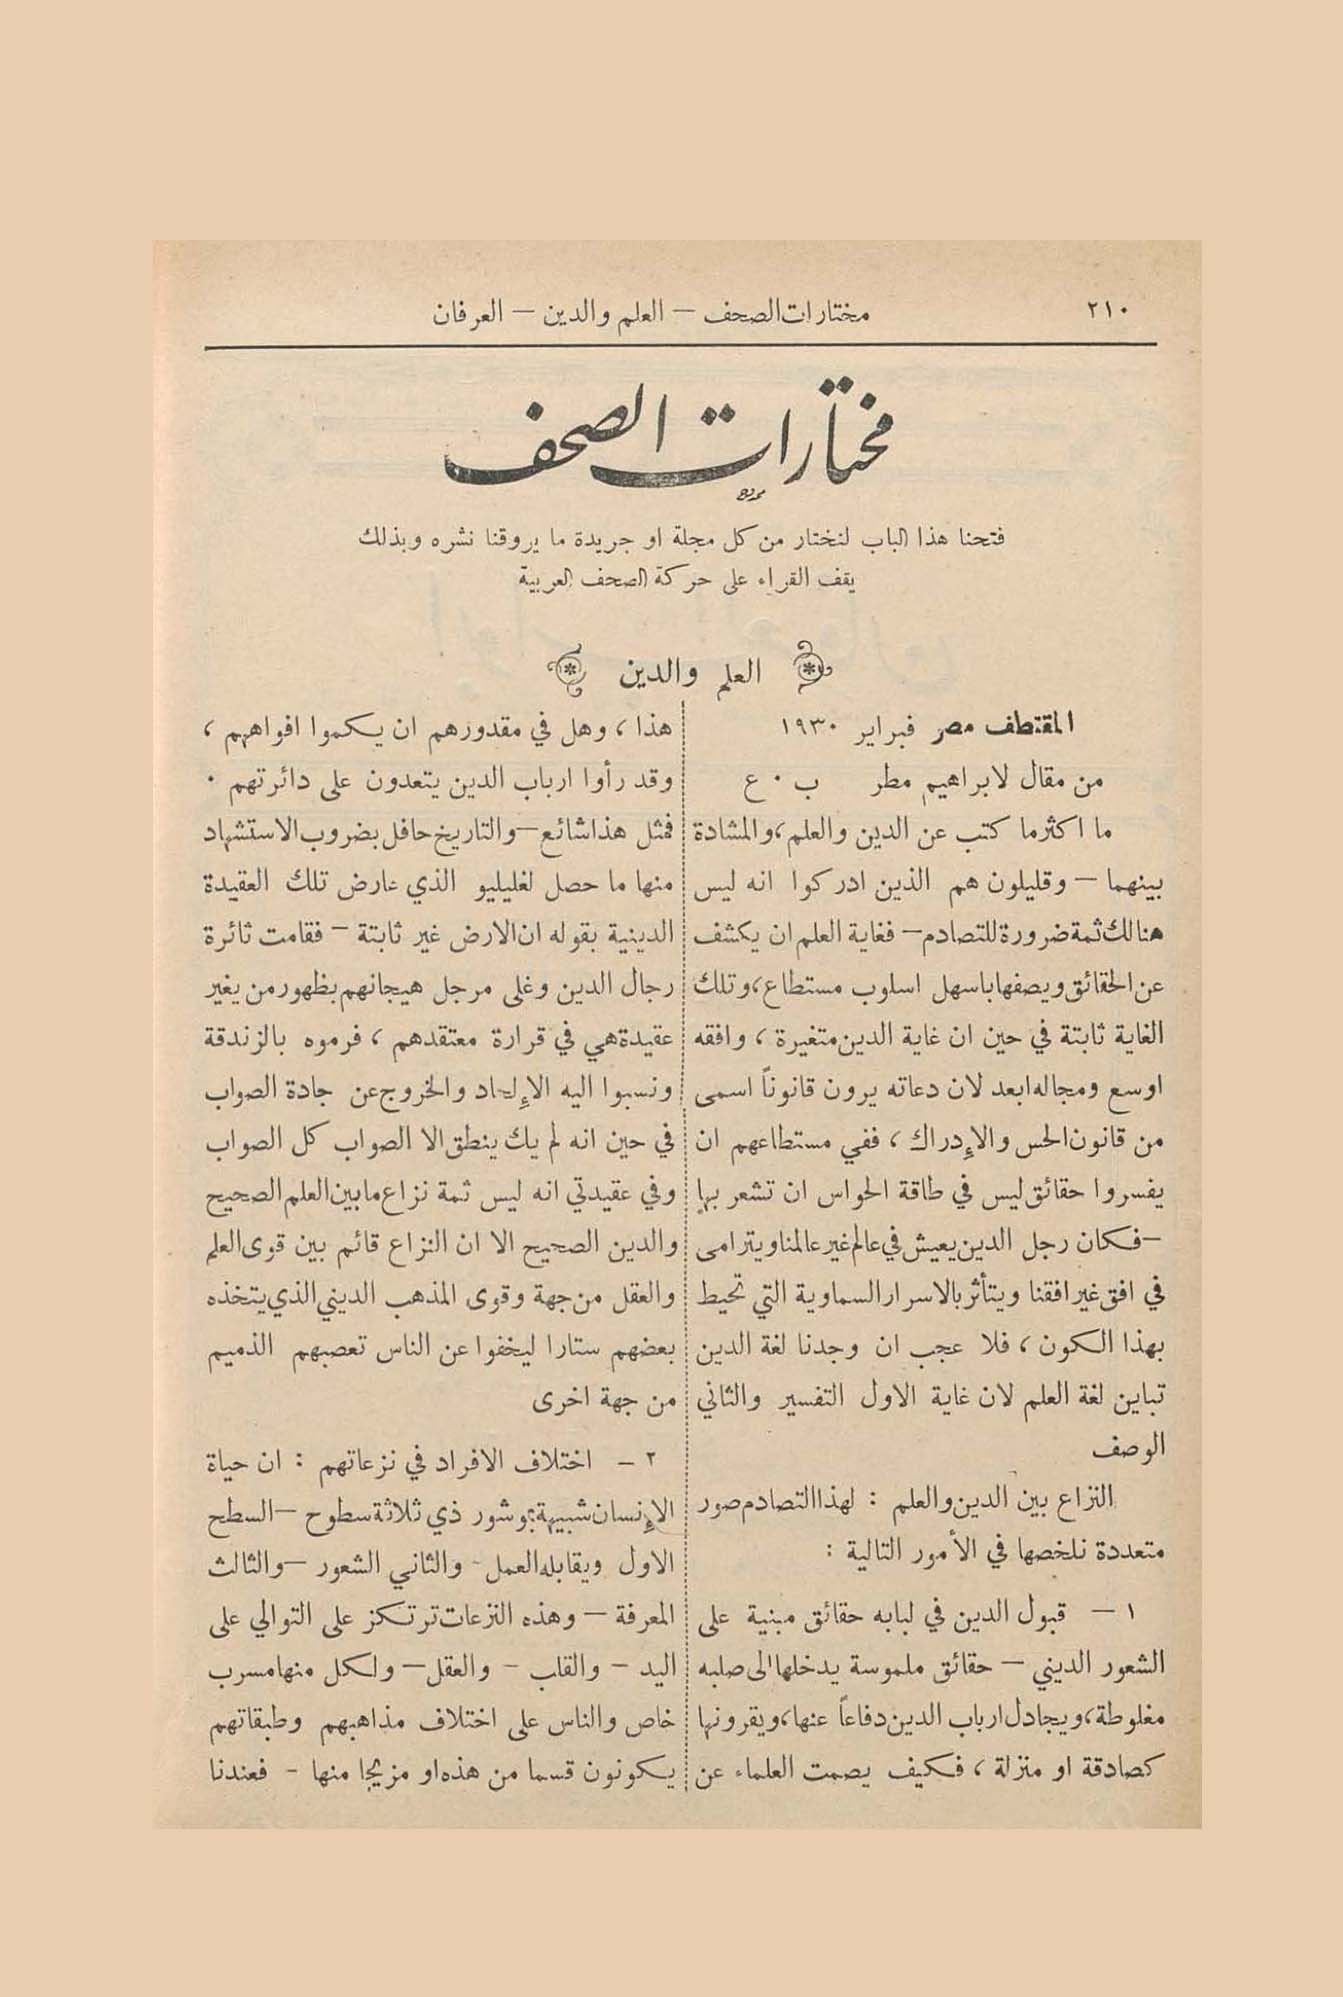 ٢١٠
مختارات الصحف — العلم والدين — العرفان
مختارات الصحف
فتحنا هذا الباب لنختار من كل مجلة او جريدة ما يروقنا نشره وبذلك
يقف القراء على حركة الصحف العربية
العلم والدين
المقتطف مصر فبراير ١٩٣٠
من مقال لابراهيم مطر ب ٠ ع
ما اكثر ما كتب عن الدين والعلم، والمشادة
بينهما — وقليلون هم الذين ادركوا انه ليس
هنالك ثمة ضرورة للتصادم — فغاية العلم ان يكشف
عن الحقائق ويصفها باسهل اسلوب مستطاع، وتلك
الغاية ثابتة في حين ان غاية الدين متغيرة ، وافقه
اوسع ومجاله ابعد لان دعاته يرون قانوناً اسمى
من قانون الحس والإدراك ، ففي مستطاعهم ان
يفسروا حقائق ليس في طاقة الحواس ان تشعر بها
— فكان رجل الدين يعيش في عالم غير عالمنا ويترامى
في افق غير افقنا ويتأثر بالاسرار السماوية التي تحيط
بهذا الكون ، فلا عجب ان وجدنا لغة الدين
تباين لغة العلم لان غاية الاول التفسير والثاني
الوصف
النزاع بين الدين والعلم : لهذا التصادم صور
متعددة نلخصها في الأمور التالية :
١ — قبول الدين في لبابه حقائق مبنية على
الشعور الديني — حقائق ملموسة يدخلها الى صلبه
مغلوطة، ويجادل ارباب الدين دفاعاً عنها، ويقرونها
كصادقة او منزلة ، فكيف يصمت العلماء عن
هذا ، وهل في مقدورهم ان يكموا افواههم ،
وقد رأوا ارباب الدين يتعدون على دائرتهم ٠
فمثل هذا شائع — والتاريخ حافل بضروب الاستشهاد
منها ما حصل لغليليو الذي عارض تلك العقيدة
الدينية بقوله ان الارض غير ثابتة — فقامت ثائرة
رجال الدين وغلى مرجل هيجانهم بظهور من يغير
عقيدة هي في قرارة معتقدهم ، فرموه بالزندقة
ونسبوا اليه الإلحاد والخروج عن جادة الصواب
في حين انه لم يك ينطق الا الصواب كل الصواب
وفي عقيدتي انه ليس ثمة نزاع ما بين العلم الصحيح
والدين الصحيح الا ان النزاع قائم بين قوى العلم
والعقل من جهة وقوى المذهب الديني الذي يتخذه
بعضهم ستارا ليخفوا عن الناس تعصبهم الذميم
من جهة اخرى
٢ — اختلاف الافراد في نزعاتهم : ان حياة
الإنسان شبيهة بموشور ذي ثلاثة سطوح — السطح
الاول ويقابله العمل - والثاني الشعور — والثالث
المعرفة — وهذه النزعات ترتكز على التوالي على
اليد - والقلب - والعقل — ولكل منها مسرب
خاص والناس على اختلاف مذاهبهم وطبقاتهم
يكونون قسما من هذه او مزيجا منها - فعندنا